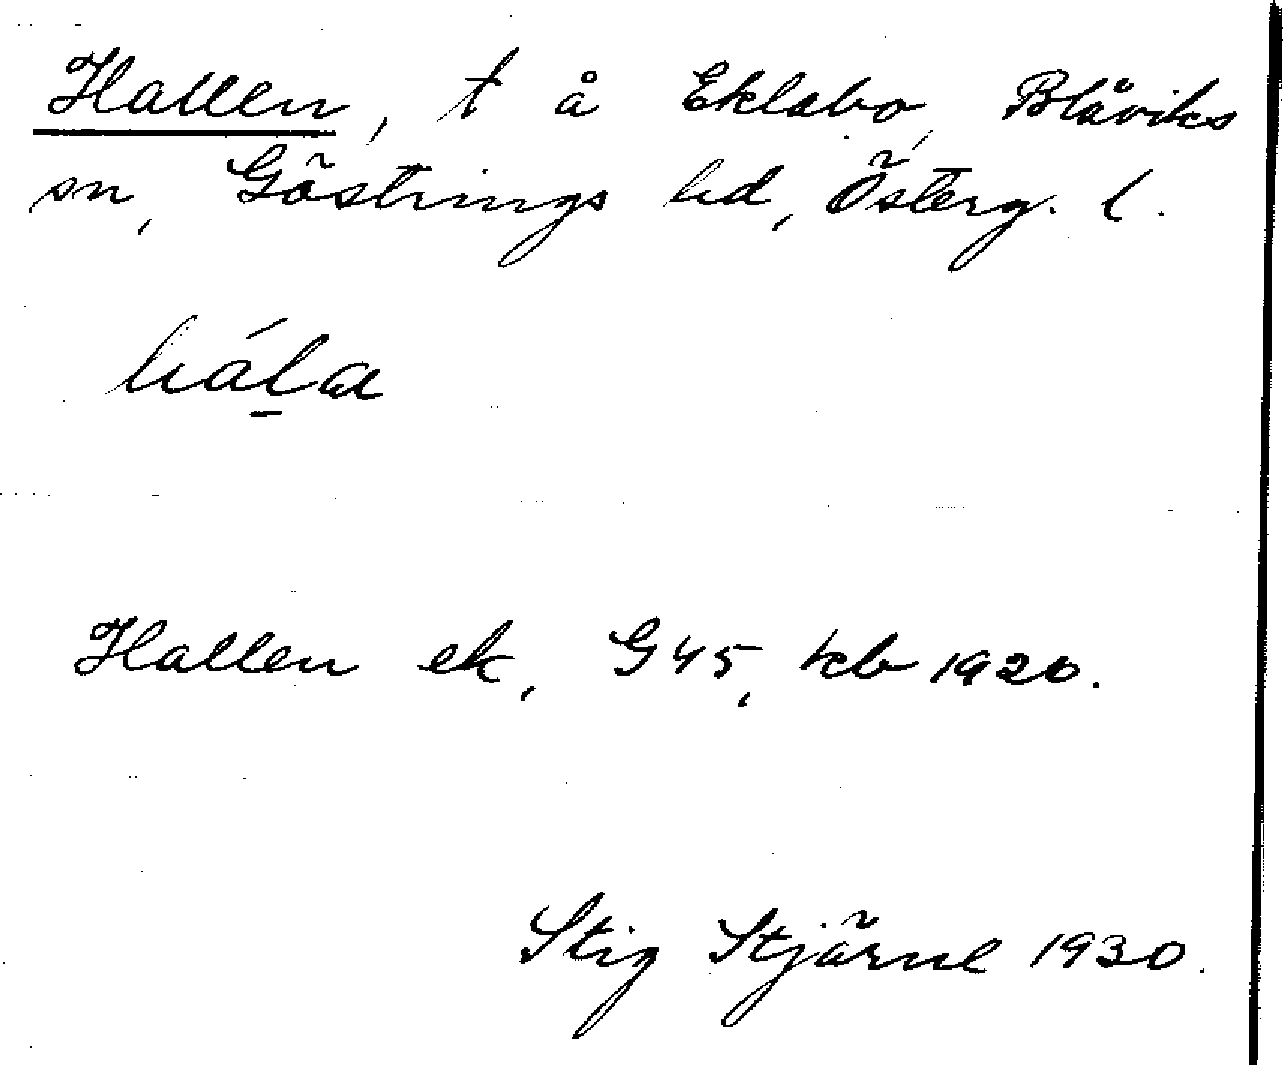 Hallen, t å Eklabo, Blåviks
sn, Göstrings hd, Österg. l.
hál̠a
Hallen ek, G45, kb 1920.
Stig Stjärne 1930.